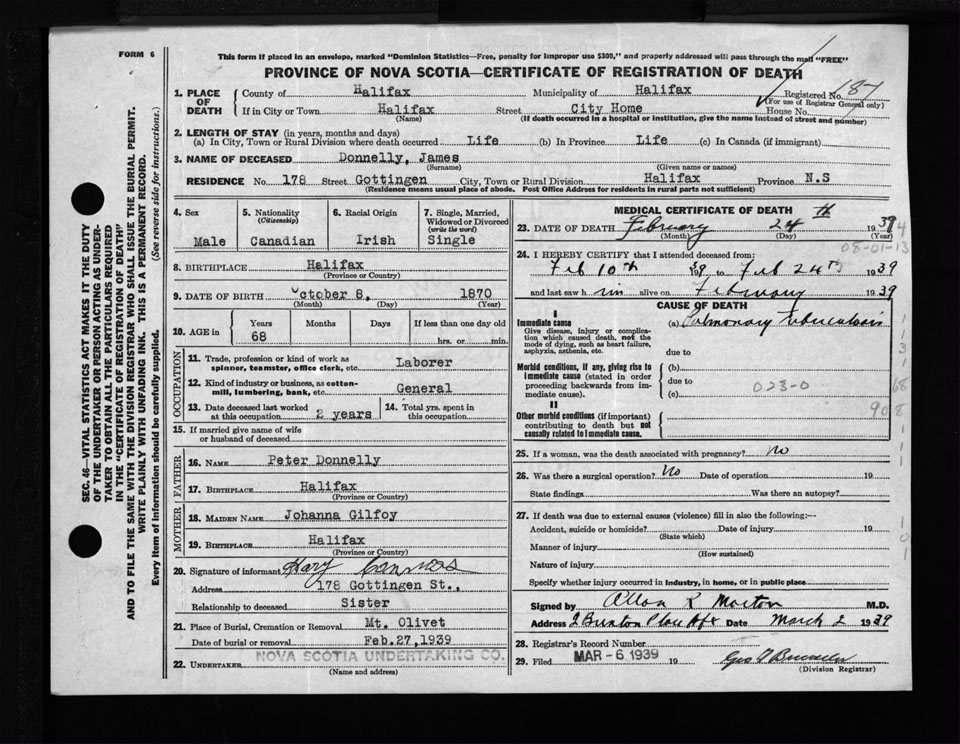 FORM 6
This form if placed in an envelope, marked "Dominion Statistics—Free, penalty for improper use $300," and properly addressed will pass through the mail "FREE"
PROVINCE OF NOVA SCOTIA—CERTIFICATE OF REGISTRATION OF DEATH
1. PLACE OF DEATH
County of Halifax Municipality of Halifax Registered No. 187
(For use of Registrar General only)
If in City or Town Halifax Street City Home House No.
(Name) (If death occurred in a hospital or institution, give the name instead of street and number)
2. LENGTH OF STAY (in years, months and days)
(a) In City, Town or Rural Division where death occurred Life (b) In Province Life (c) In Canada (if immigrant)
3. NAME OF DECEASED Donnelly, James
(Surname) (Given name or names)
RESIDENCE No. 178 Street Gottingen City, Town or Rural Division Halifax Province N.S
(Residence means usual place of abode. Post Office Address for residents in rural parts not sufficient)
4. Sex Male
5. Nationality (Citizenship) Canadian
6. Racial Origin Irish
7. Single, Married, Widowed or Divorced (write the word) Single
8. BIRTHPLACE Halifax
(Province or Country)
9. DATE OF BIRTH October 8, 1870
(Month) (Day) (Year)
10. AGE in Years Months Days If less than one day old
68 hrs. or min.
OCCUPATION
11. Trade, profession or kind of work as spinner, teamster, office clerk, etc. Laborer
12. Kind of industry or business, as cotton-mill, lumbering, bank, etc. General
13. Date deceased last worked at this occupation 2 years
14. Total yrs. spent in this occupation
15. If married give name of wife or husband of deceased
FATHER
16. NAME Peter Donnelly
17. BIRTHPLACE Halifax
(Province or Country)
MOTHER
18. MAIDEN NAME Johanna Gilfoy
19. BIRTHPLACE Halifax
(Province or Country)
20. Signature of informant
Address 178 Gottingen St.,
Relationship to deceased Sister
21. Place of Burial, Cremation or Removal Mt. Olivet
Date of burial or removal Feb.27,1939
22. UNDERTAKER NOVA SCOTIA UNDERTAKING CO.
(Name and address)
MEDICAL CERTIFICATE OF DEATH
23. DATE OF DEATH February 24th 1939
(Month) (Day) (Year)
08-01-13
24. I HEREBY CERTIFY that I attended deceased from:
Feb 10th 39 to Feb 24th 1939
and last saw him alive on February 1939
CAUSE OF DEATH
I
Immediate cause
Give disease, injury or complication which caused death, not the mode of dying, such as heart failure, asphyxia, asthenia, etc.
(a) Pulmonary Tuberculosis
due to
Morbid conditions, if any, giving rise to immediate cause (stated in order proceeding backwards from immediate cause).
(b)
due to
(c)
023-0
II
Other morbid conditions (if important) contributing to death but not causally related to immediate cause.
908
25. If a woman, was the death associated with pregnancy? no
26. Was there a surgical operation? No Date of operation 19
State findings Was there an autopsy?
27. If death was due to external causes (violence) fill in also the following:—
Accident, suicide or homicide? Date of injury 19
(State which)
Manner of injury
(How sustained)
Nature of injury
Specify whether injury occurred in industry, in home, or in public place
Signed by Allan R Morton M.D.
Address Date March 2 1939
28. Registrar's Record Number
29. Filed MAR - 6 1939 19
(Division Registrar)
SEC. 46—VITAL STATISTICS ACT MAKES IT THE DUTY
OF THE UNDERTAKER OR PERSON ACTING AS UNDER-
TAKER TO OBTAIN ALL THE PARTICULARS REQUIRED
IN THE "CERTIFICATE OF REGISTRATION OF DEATH"
AND TO FILE THE SAME WITH THE DIVISION REGISTRAR WHO SHALL ISSUE THE BURIAL PERMIT.
WRITE PLAINLY WITH UNFADING INK. THIS IS A PERMANENT RECORD.
Every item of information should be carefully supplied. (See reverse side for instructions.)